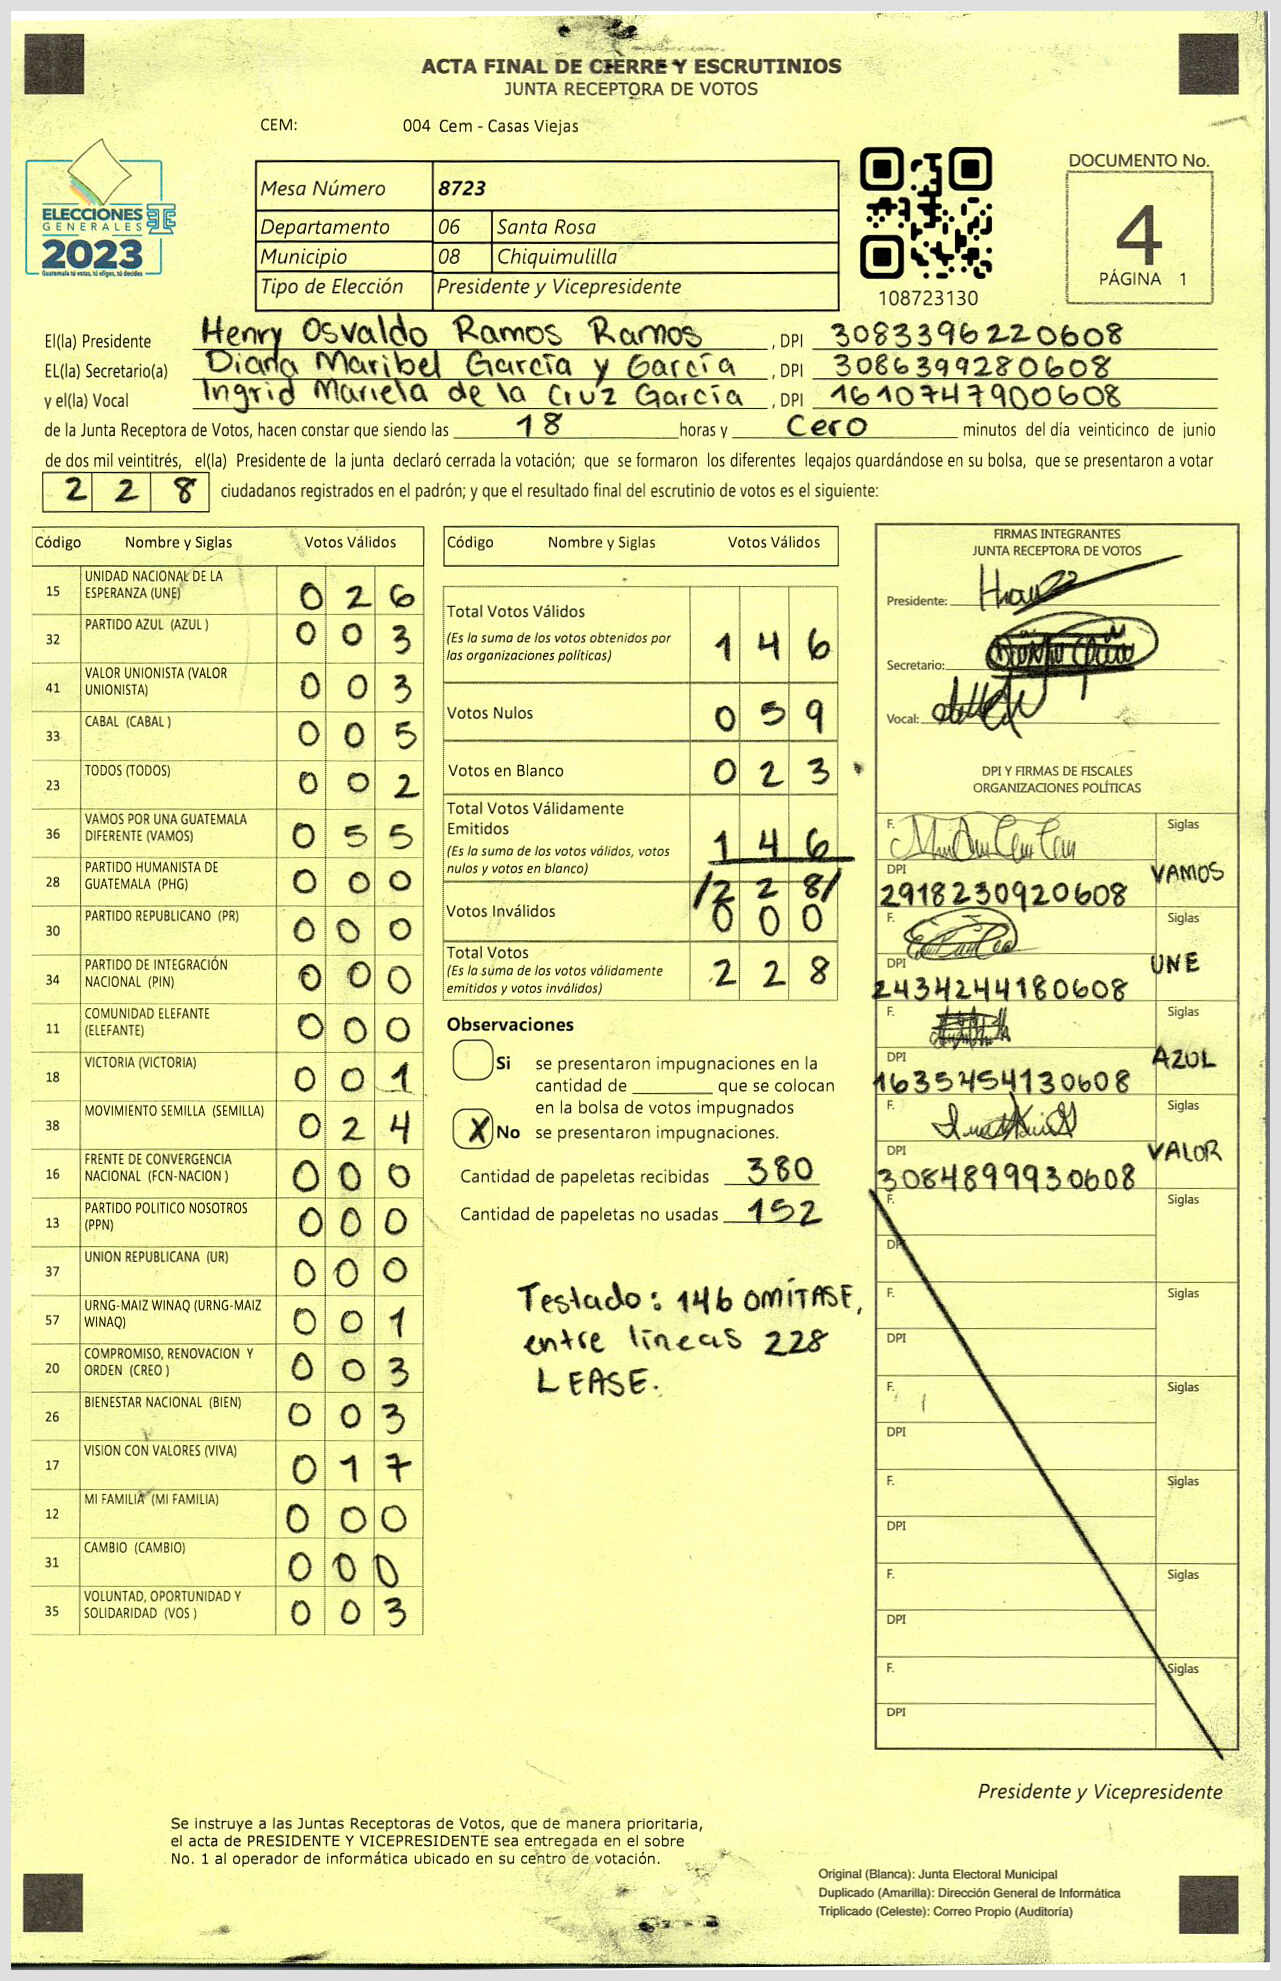 ACTA FINAL DE CIERRE Y ESCRUTINIOS
JUNTA RECEPTORA DE VOTOS
CEM: 004 Cem - Casas Viejas
ELECCIONES
GENERALES
2023
Guatemala tú votas, tú eliges, tú decides
Mesa Número 8723
Departamento 06 Santa Rosa
Municipio 08 Chiquimulilla
Tipo de Elección Presidente y Vicepresidente
108723130
DOCUMENTO No.
4
PÁGINA 1
El(la) Presidente Henry Osvaldo Ramos Ramos , DPI 3083396220608
EL(la) Secretario(a) Diana Maribel García y García , DPI 3086399280608
y el(la) Vocal Ingrid Mariela de la Cruz García , DPI 1610747900608
de la Junta Receptora de Votos, hacen constar que siendo las 18 horas y Cero minutos del día veinticinco de junio
de dos mil veintitrés, el(la) Presidente de la junta declaró cerrada la votación; que se formaron los diferentes legajos guardándose en su bolsa, que se presentaron a votar
2 2 8 ciudadanos registrados en el padrón; y que el resultado final del escrutinio de votos es el siguiente:
Código Nombre y Siglas Votos Válidos
15 UNIDAD NACIONAL DE LA ESPERANZA (UNE) 0 2 6
32 PARTIDO AZUL (AZUL ) 0 0 3
41 VALOR UNIONISTA (VALOR UNIONISTA) 0 0 3
33 CABAL (CABAL ) 0 0 5
23 TODOS (TODOS) 0 0 2
36 VAMOS POR UNA GUATEMALA DIFERENTE (VAMOS) 0 5 5
28 PARTIDO HUMANISTA DE GUATEMALA (PHG) 0 0 0
30 PARTIDO REPUBLICANO (PR) 0 0 0
34 PARTIDO DE INTEGRACIÓN NACIONAL (PIN) 0 0 0
11 COMUNIDAD ELEFANTE (ELEFANTE) 0 0 0
18 VICTORIA (VICTORIA) 0 0 1
38 MOVIMIENTO SEMILLA (SEMILLA) 0 2 4
16 FRENTE DE CONVERGENCIA NACIONAL (FCN-NACION ) 0 0 0
13 PARTIDO POLITICO NOSOTROS (PPN) 0 0 0
37 UNION REPUBLICANA (UR) 0 0 0
57 URNG-MAIZ WINAQ (URNG-MAIZ WINAQ) 0 0 1
20 COMPROMISO, RENOVACION Y ORDEN (CREO ) 0 0 3
26 BIENESTAR NACIONAL (BIEN) 0 0 3
17 VISION CON VALORES (VIVA) 0 1 7
12 MI FAMILIA (MI FAMILIA) 0 0 0
31 CAMBIO (CAMBIO) 0 0 0
35 VOLUNTAD, OPORTUNIDAD Y SOLIDARIDAD (VOS ) 0 0 3
Código Nombre y Siglas Votos Válidos
Total Votos Válidos
(Es la suma de los votos obtenidos por
las organizaciones políticas) 1 4 6
Votos Nulos 0 5 9
Votos en Blanco 0 2 3
Total Votos Válidamente
Emitidos
(Es la suma de los votos válidos, votos
nulos y votos en blanco) 1 4 6
/2 2 8/
Votos Inválidos 0 0 0
Total Votos
(Es la suma de los votos válidamente
emitidos y votos inválidos) 2 2 8
Observaciones
Si se presentaron impugnaciones en la
cantidad de ________ que se colocan
en la bolsa de votos impugnados
X No se presentaron impugnaciones.
Cantidad de papeletas recibidas 380
Cantidad de papeletas no usadas 152
Testado: 146 OMÍTASE,
entre líneas 228
LEASE.
FIRMAS INTEGRANTES
JUNTA RECEPTORA DE VOTOS
Presidente:
Secretario:
Vocal:
DPI Y FIRMAS DE FISCALES
ORGANIZACIONES POLÍTICAS
F. Siglas
DPI VAMOS
2918230920608
F. Siglas
DPI UNE
2434244180608
F. Siglas
DPI AZUL
1635454130608
F. Siglas
DPI VALOR
3084899930608
F. Siglas
DPI
F. Siglas
DPI
F. Siglas
DPI
F. Siglas
DPI
F. Siglas
DPI
F. Siglas
DPI
Presidente y Vicepresidente
Se instruye a las Juntas Receptoras de Votos, que de manera prioritaria,
el acta de PRESIDENTE Y VICEPRESIDENTE sea entregada en el sobre
No. 1 al operador de informática ubicado en su centro de votación.
Original (Blanca): Junta Electoral Municipal
Duplicado (Amarilla): Dirección General de Informática
Triplicado (Celeste): Correo Propio (Auditoría)